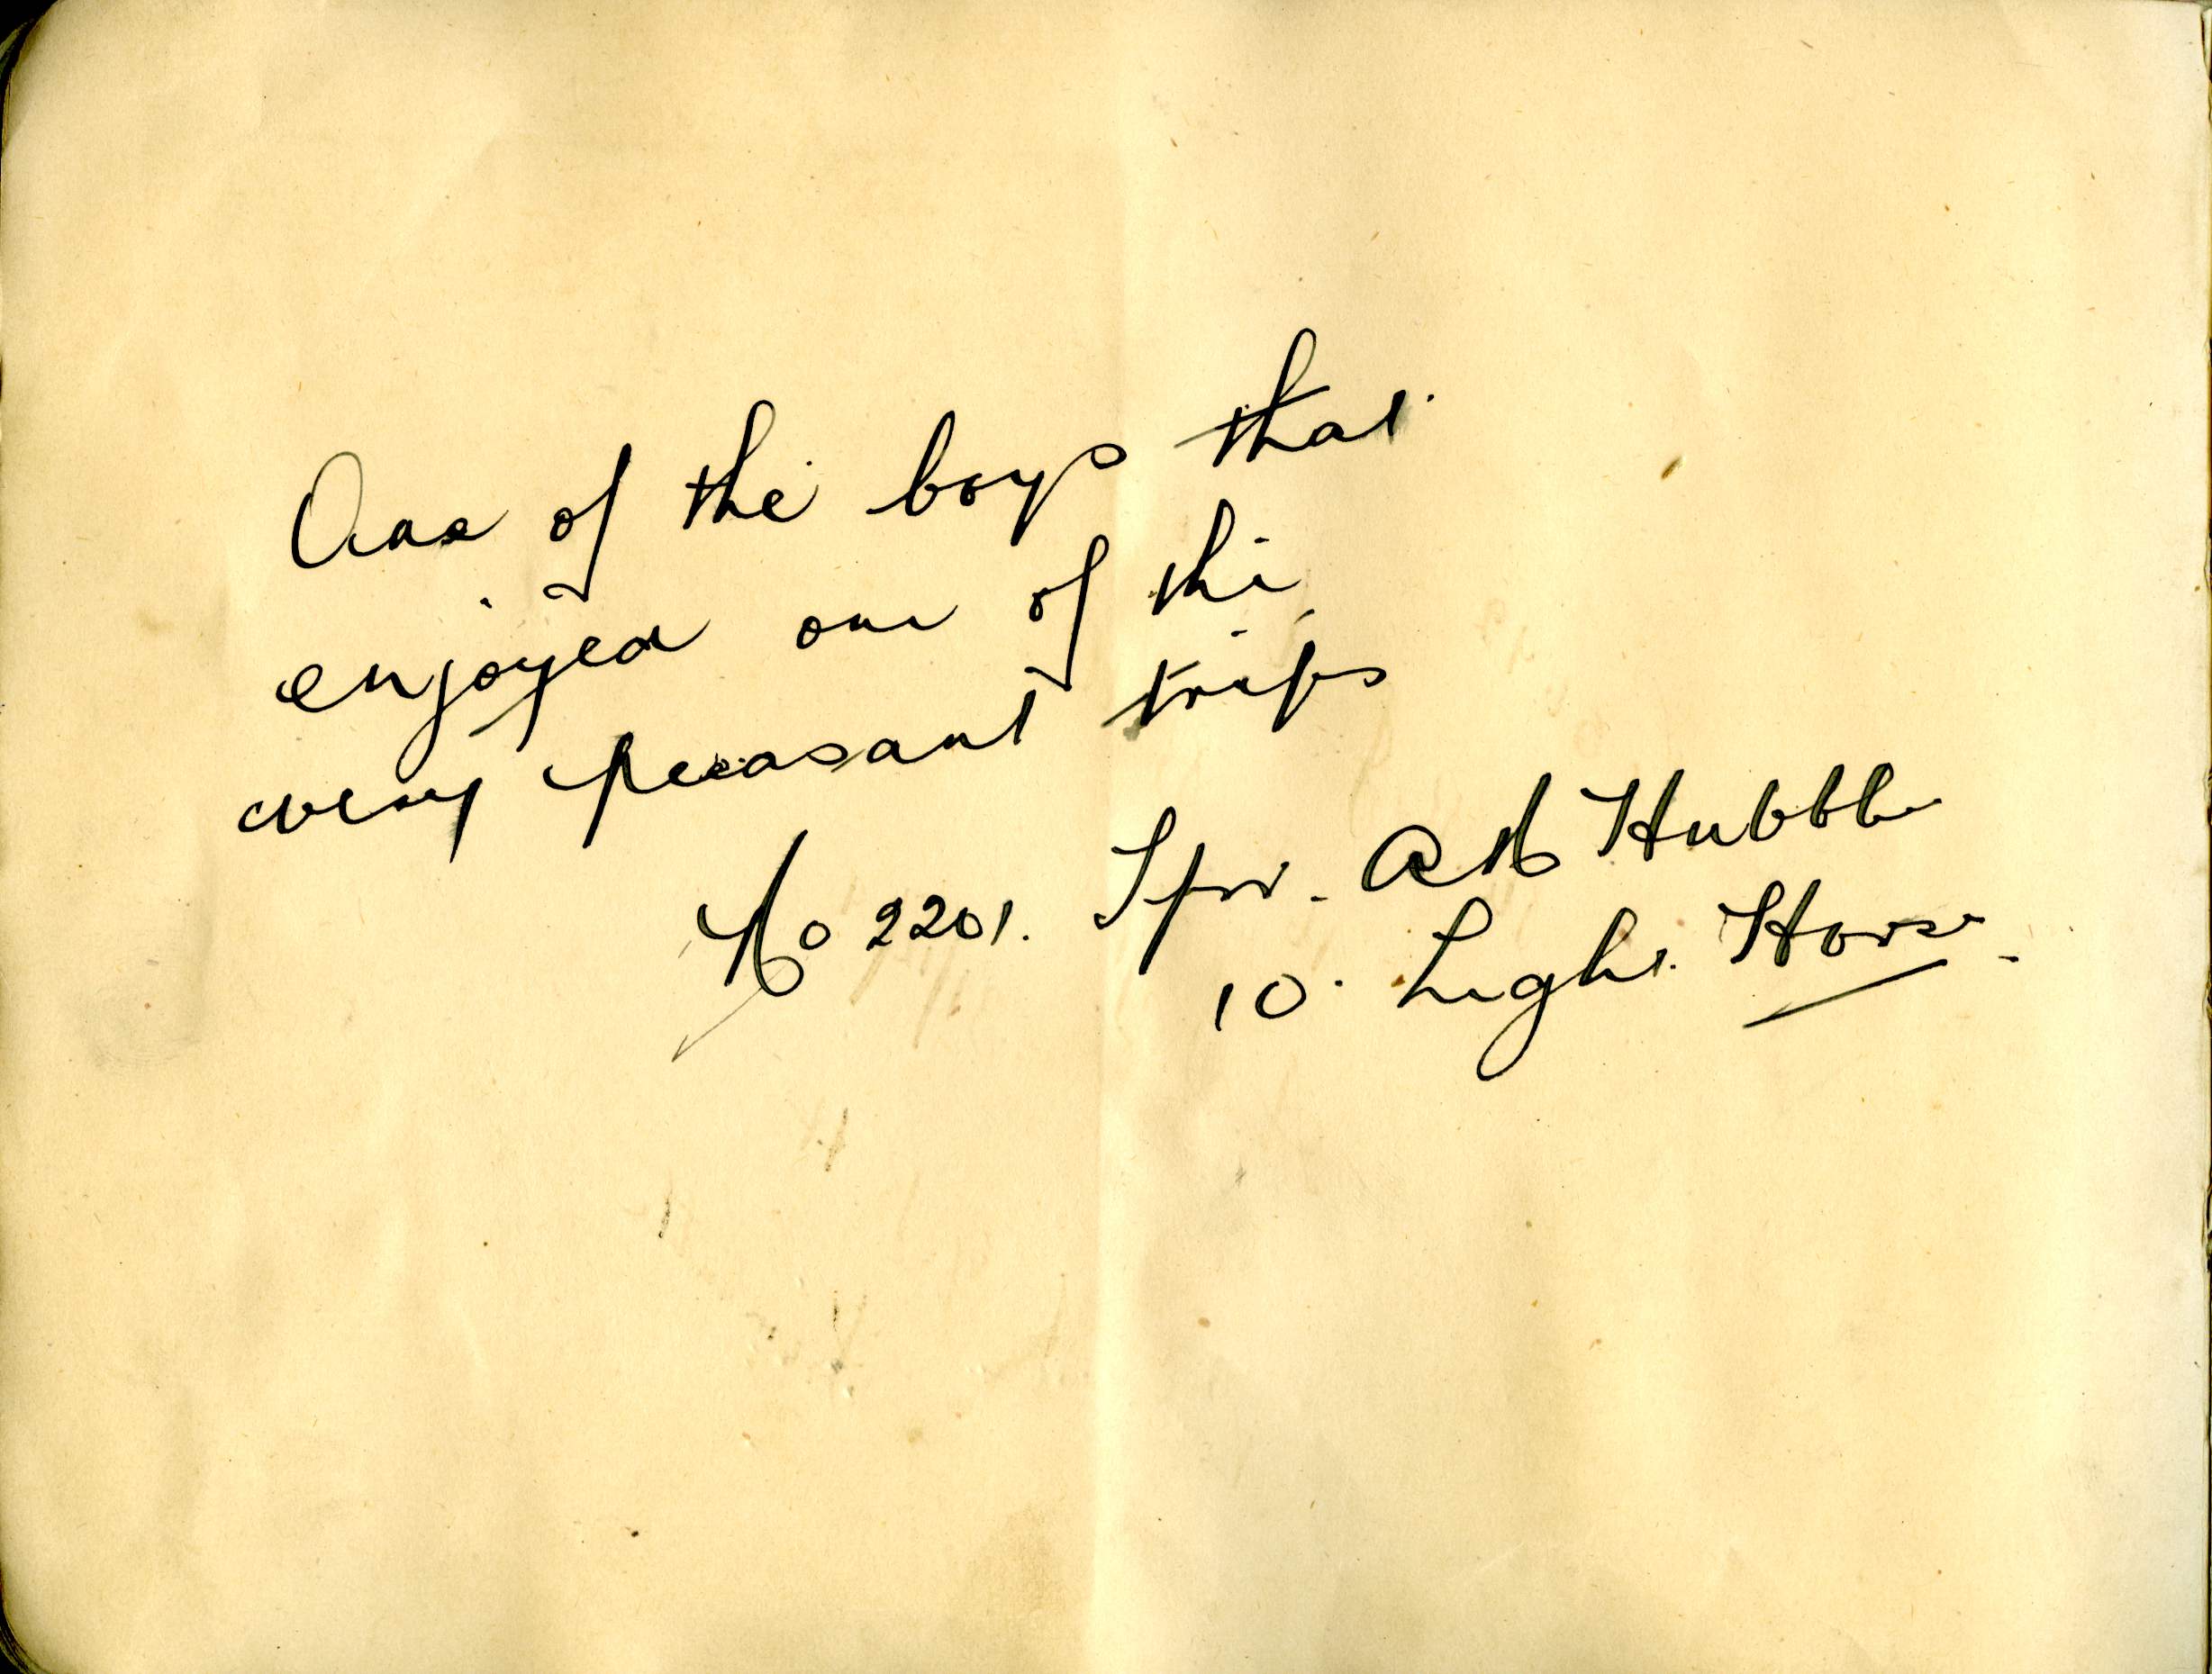 One of the boys that
enjoyed one of the
very pleasant trips
No 2201. Tpr. A H Hubble
10. Light Horse.